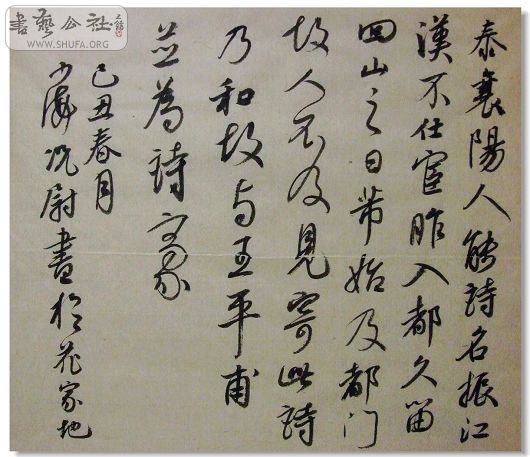 書藝公社
WWW.SHUFA.ORG
泰襄陽人能詩名振江
漢不仕宦昨入都久留
回山之日芾始及都门
故人不及見寄此詩
乃和故与王平甫
並為詩
己丑春月
况尉書於花家地